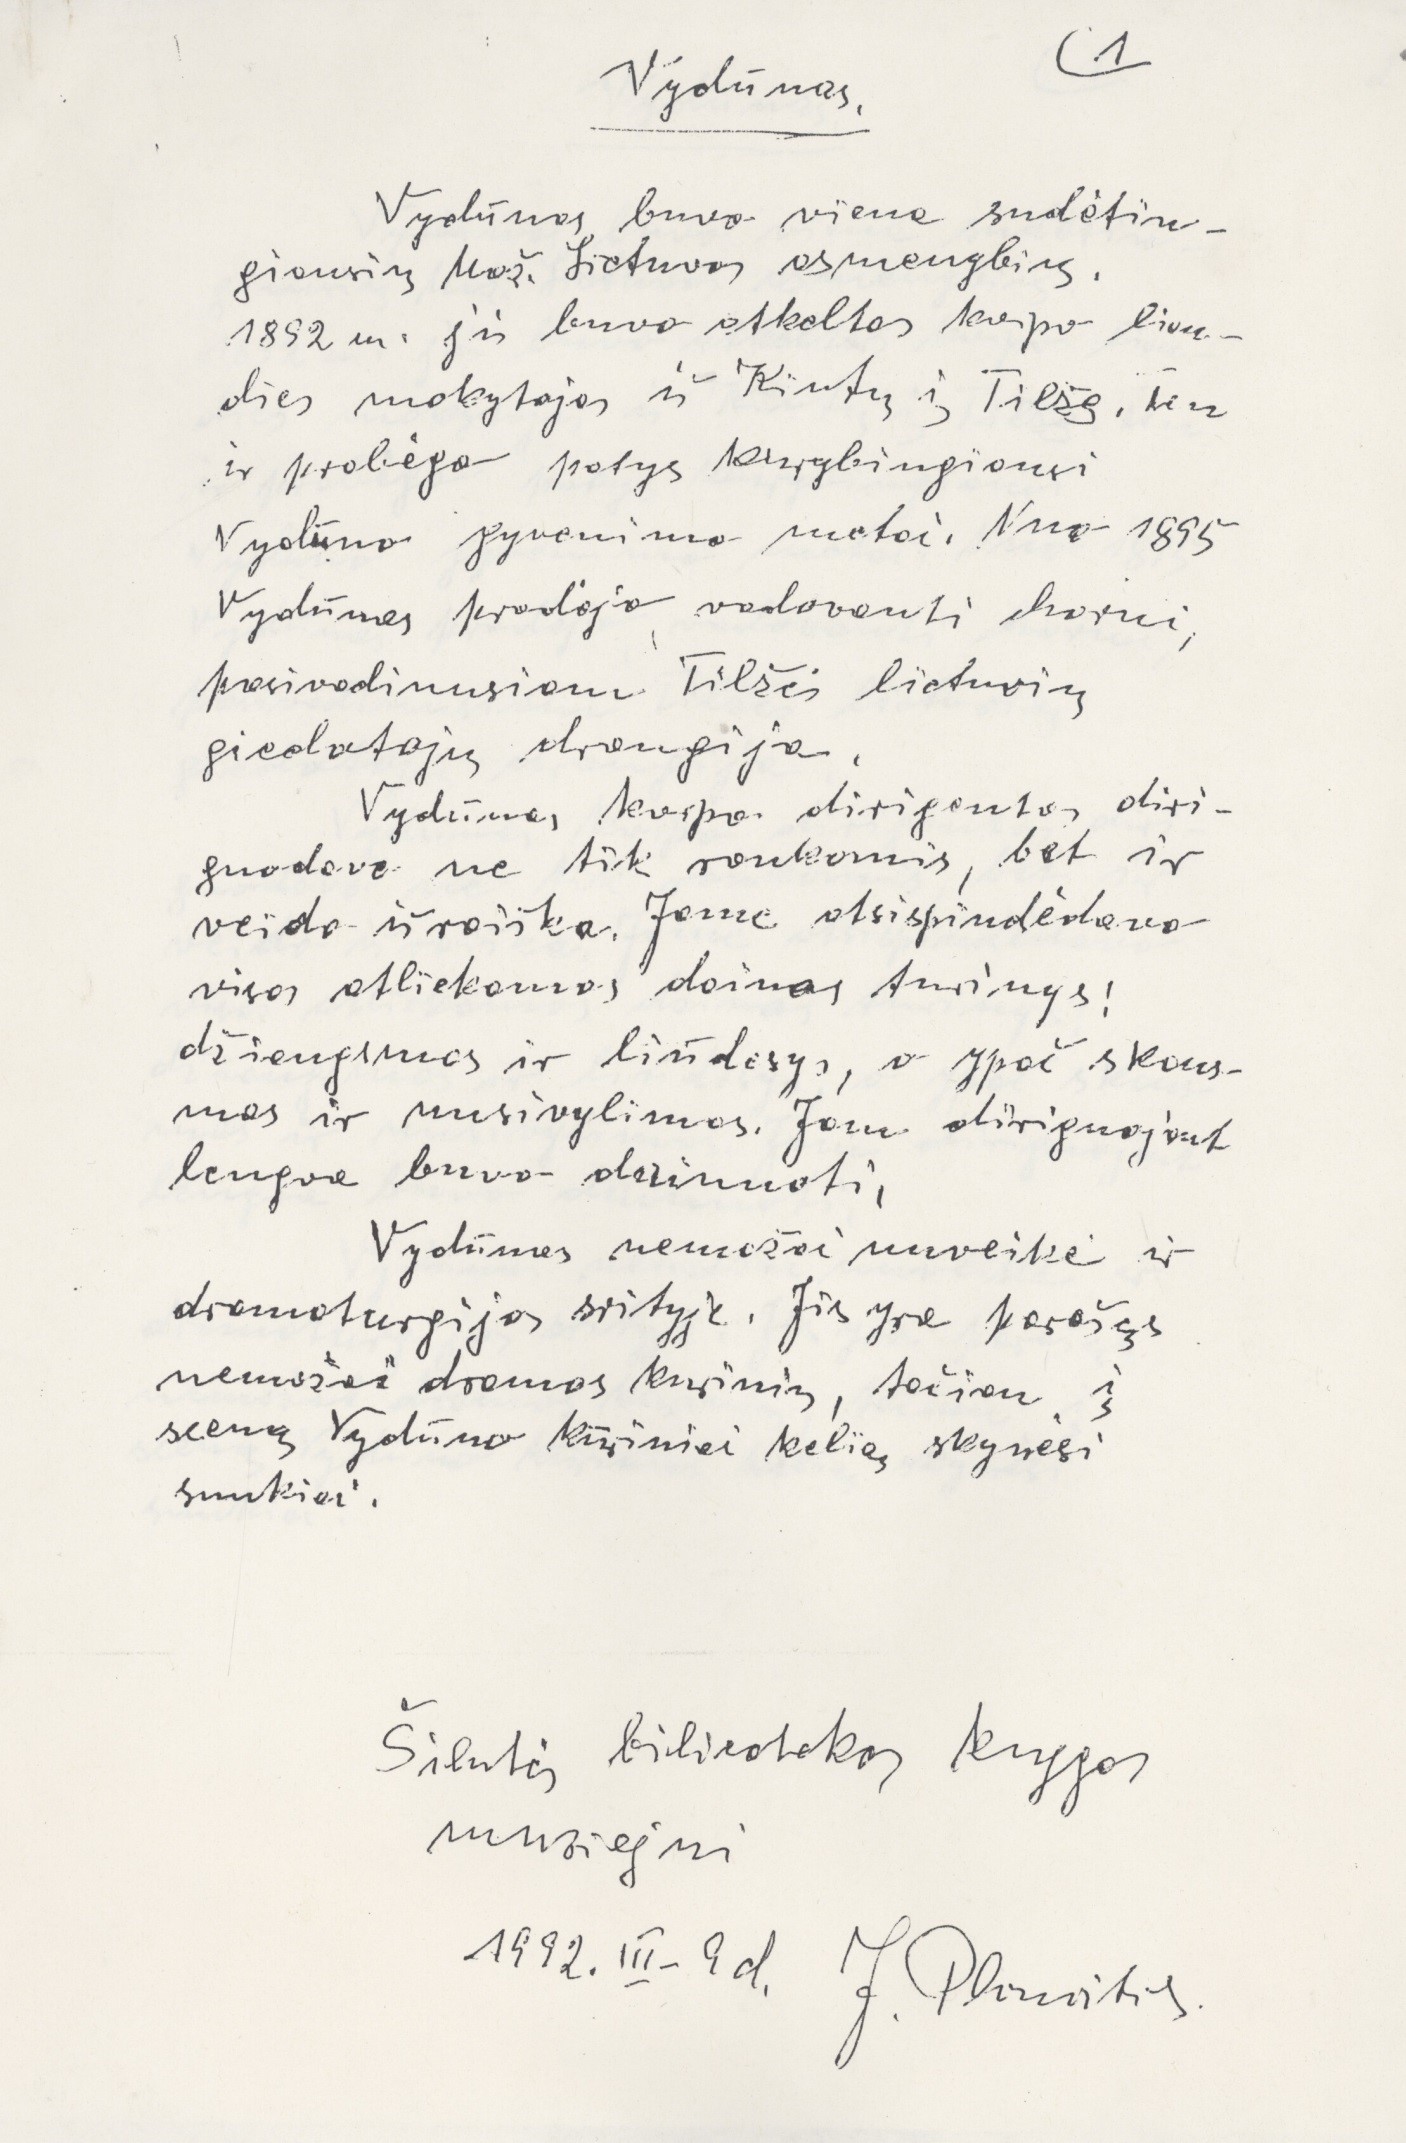 (1
Vydūnas.
Vydūnas buvo viena sudėtin-
giausių Maž. Lietuvos asmenybių.
1892 m. jis buvo atkeltas kaipo liau-
dies mokytojas iš Kintų į Tilžę. Ten
ir prabėgo patys kurybingiausi
Vydūno gyvenimo metai. Nuo 1895
Vydūnas pradėjo vadovauti chorui,
pasivadinusiam Tilžės lietuvių
giedotojų draugija.
Vydūnas kaipo dirigentas diri-
guodavo ne tik rankomis, bet ir
veido išraiška. Jame atsispindėdavo
visas atliekamos dainos turinys:
džiaugsmas ir liūdesys, o ypač skaus-
mas ir nusivylimas. Jam diriguojant
lengva buvo dainuoti.
Vydūnas nemažai nuveikė ir
dramaturgijos srityje. Jis yra parašęs
nemažai dramos kurinių, tačiau į
sceną Vydūno kūriniai kelią skynėsi
sunkiai.
Šilutės bibliotekos knygos
muziejui
1992. III - 9 d. J.